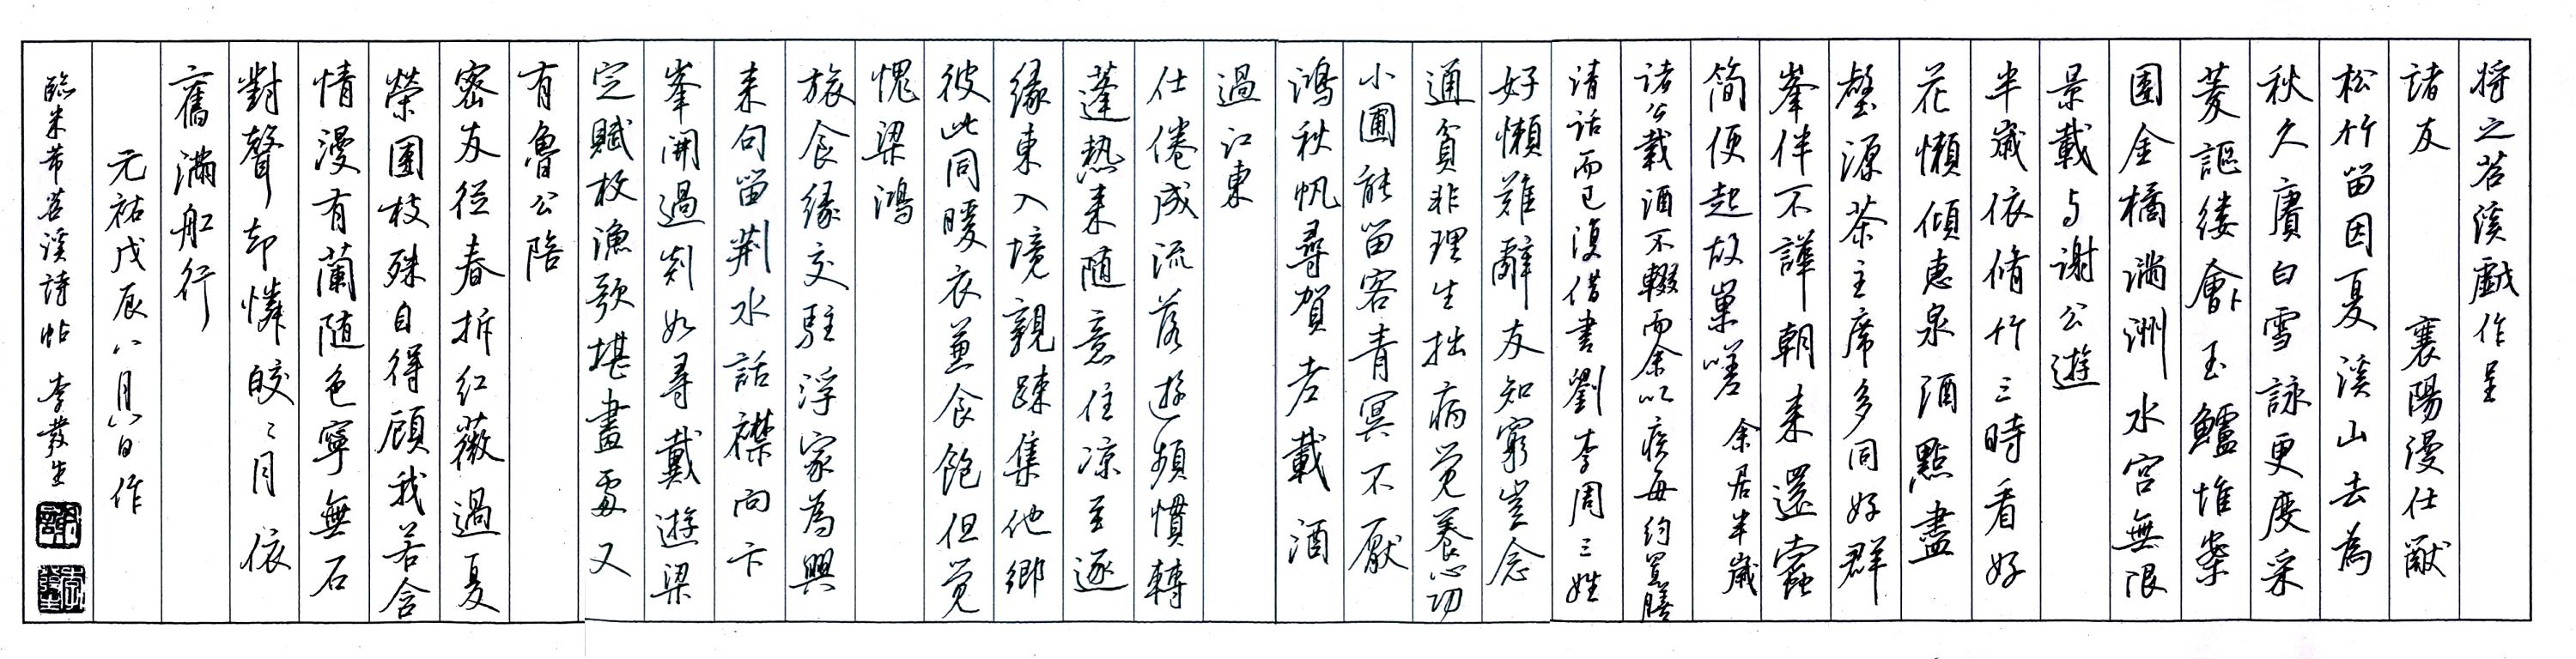 将之苕溪戲作呈
諸友 襄陽漫仕黻
松竹留因夏溪山去為
秋久賡白雪詠更度采
菱謳縷會玉鱸堆案
團金橘滿洲水宮無限
景載与謝公遊
半歲依脩竹三時看好
花懶傾惠泉酒點盡
壑源茶主席多同好群
峯伴不譁朝来還蠧
简便起故巢嗟 余居半歲
诸公載酒不輟而余以疾每約置膳
清話而已復借書劉李周三姓
好懶難辭友知窮豈念
通貧非理生拙病觉養心功
小圃能留客青冥不厭
鴻秋帆尋賀老載酒
過江東
仕倦成流落遊頻慣轉
蓬熱来随意住凉至逐
緣東入境親疎集他鄉
彼此同暖衣兼食飽但觉
愧梁鴻
旅食緣交駐浮家為興
来句留荆水話襟向卞
峯開過剡如尋戴遊梁
定賦枚漁歌堪畫處又
有魯公陪
密友従春拆红薇過夏
榮團枝殊自得顧我若含
情漫有蘭随色寧無石
對聲却憐皎〻月依
舊滿舡行
元祐戊辰八月八日作
臨米芾苕溪詩帖 李發生